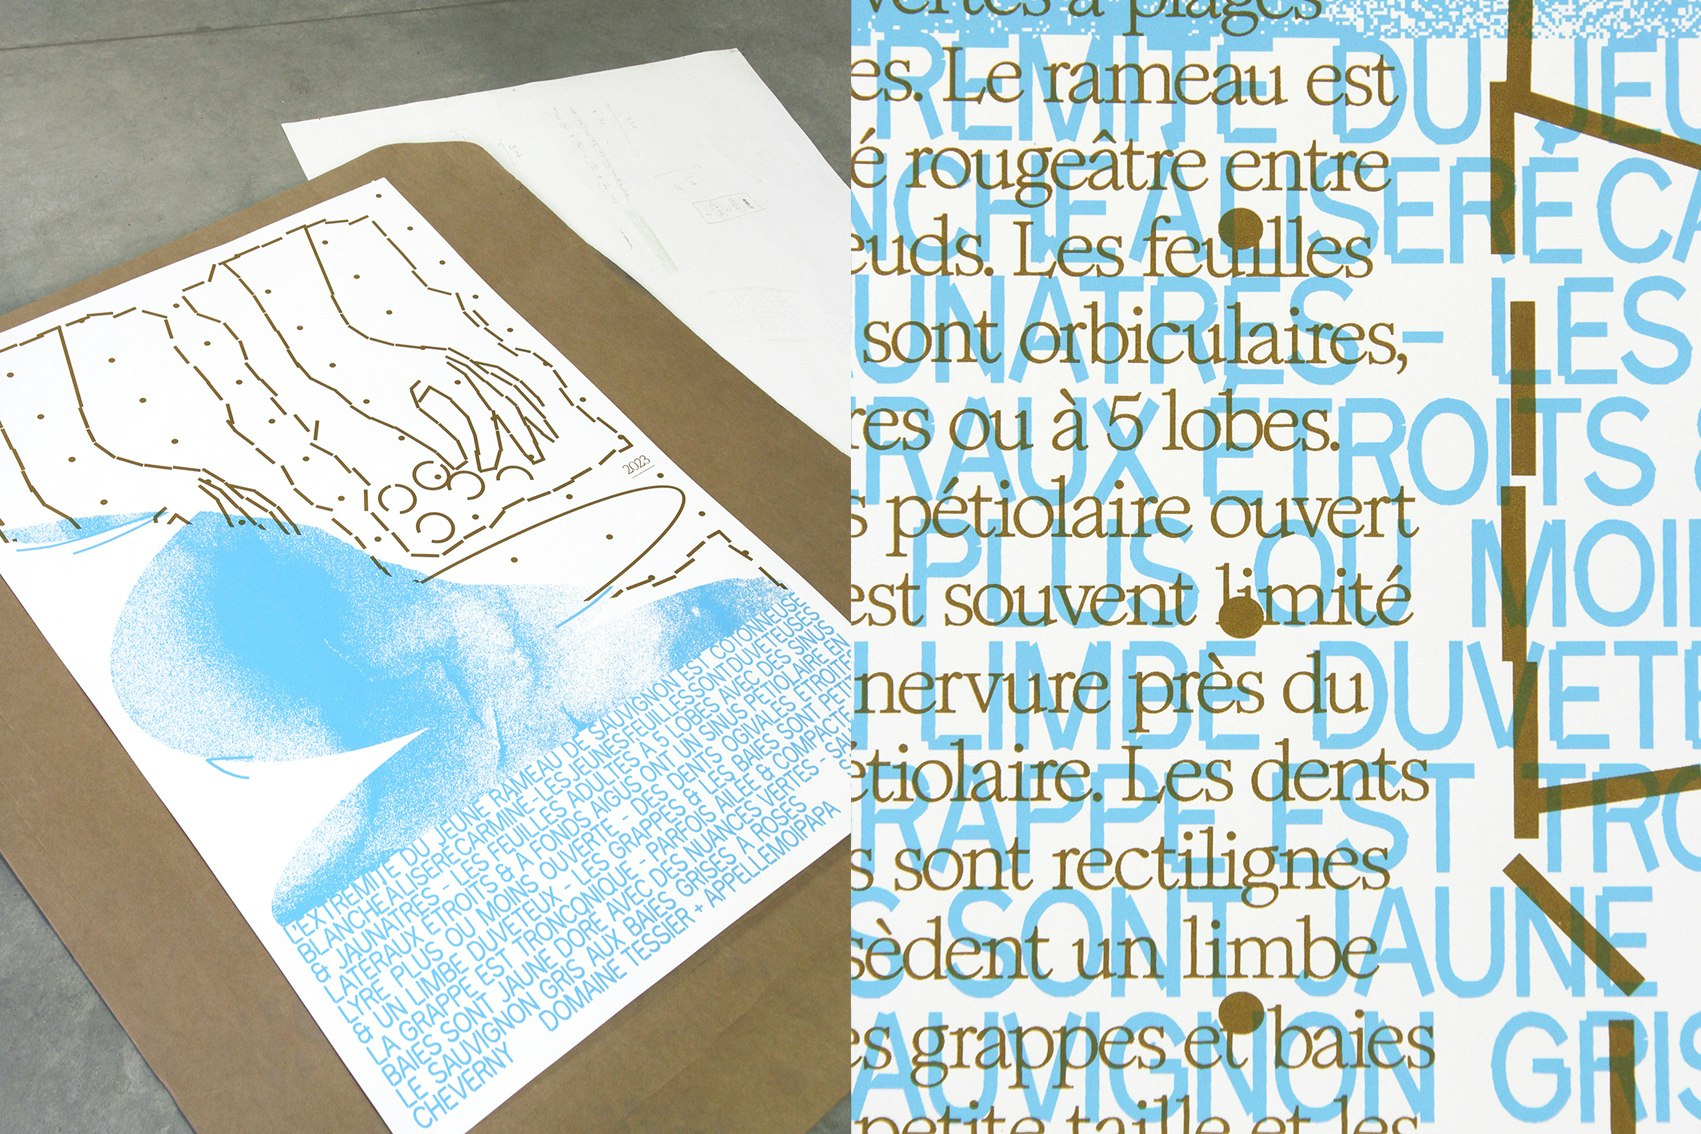 2023
L'EXTREMITÉ DU JEUNE RAMEAU DE SAUVIGNON EST COTONNEUSE,
BLANCHE À LISERÉ CARMINE - LES JEUNES FEUILLES SONT DUVETEUSES
& JAUNATRES - LES FEUILLES ADULTES À 5 LOBES AVEC DES SINUS
LATERAUX ETROITS & A FONDS AIGUS ONT UN SINUS PETIOLAIRE EN
LYRE PLUS OU MOINS OUVERTE - DES DENTS OGIVALES ETROITES
& UN LIMBE DUVETEUX - LES GRAPPES & LES BAIES SONT PETI
LA GRAPPE EST TRONCONIQUE - PARFOIS AILÉE & COMPACTE
BAIES SONT JAUNE DORÉ AVEC DES NUANCES VERTES - SA
LE SAUVIGNON GRIS AUX BAIES GRISES À ROSES
CHEVERNY DOMAINE TESSIER + APPELLEMOIPAPA
vertes à plages
es. Le rameau est
é rougeâtre entre
euds. Les feuilles
sont orbiculaires,
res ou à 5 lobes.
s pétiolaire ouvert
est souvent limité
nervure près du
étiolaire. Les dents
s sont rectilignes
sèdent un limbe
es grappes et baies
petite taille et les
REMITÉ DU JEU
NCHE À LISERÉ CA
AUNATRES - LES
ERAUX ETROITS &
PLUS OU MOIN
N LIMBE DUVETE
RAPPE EST TRO
S SONT JAUNE
AUVIGNON GRIS